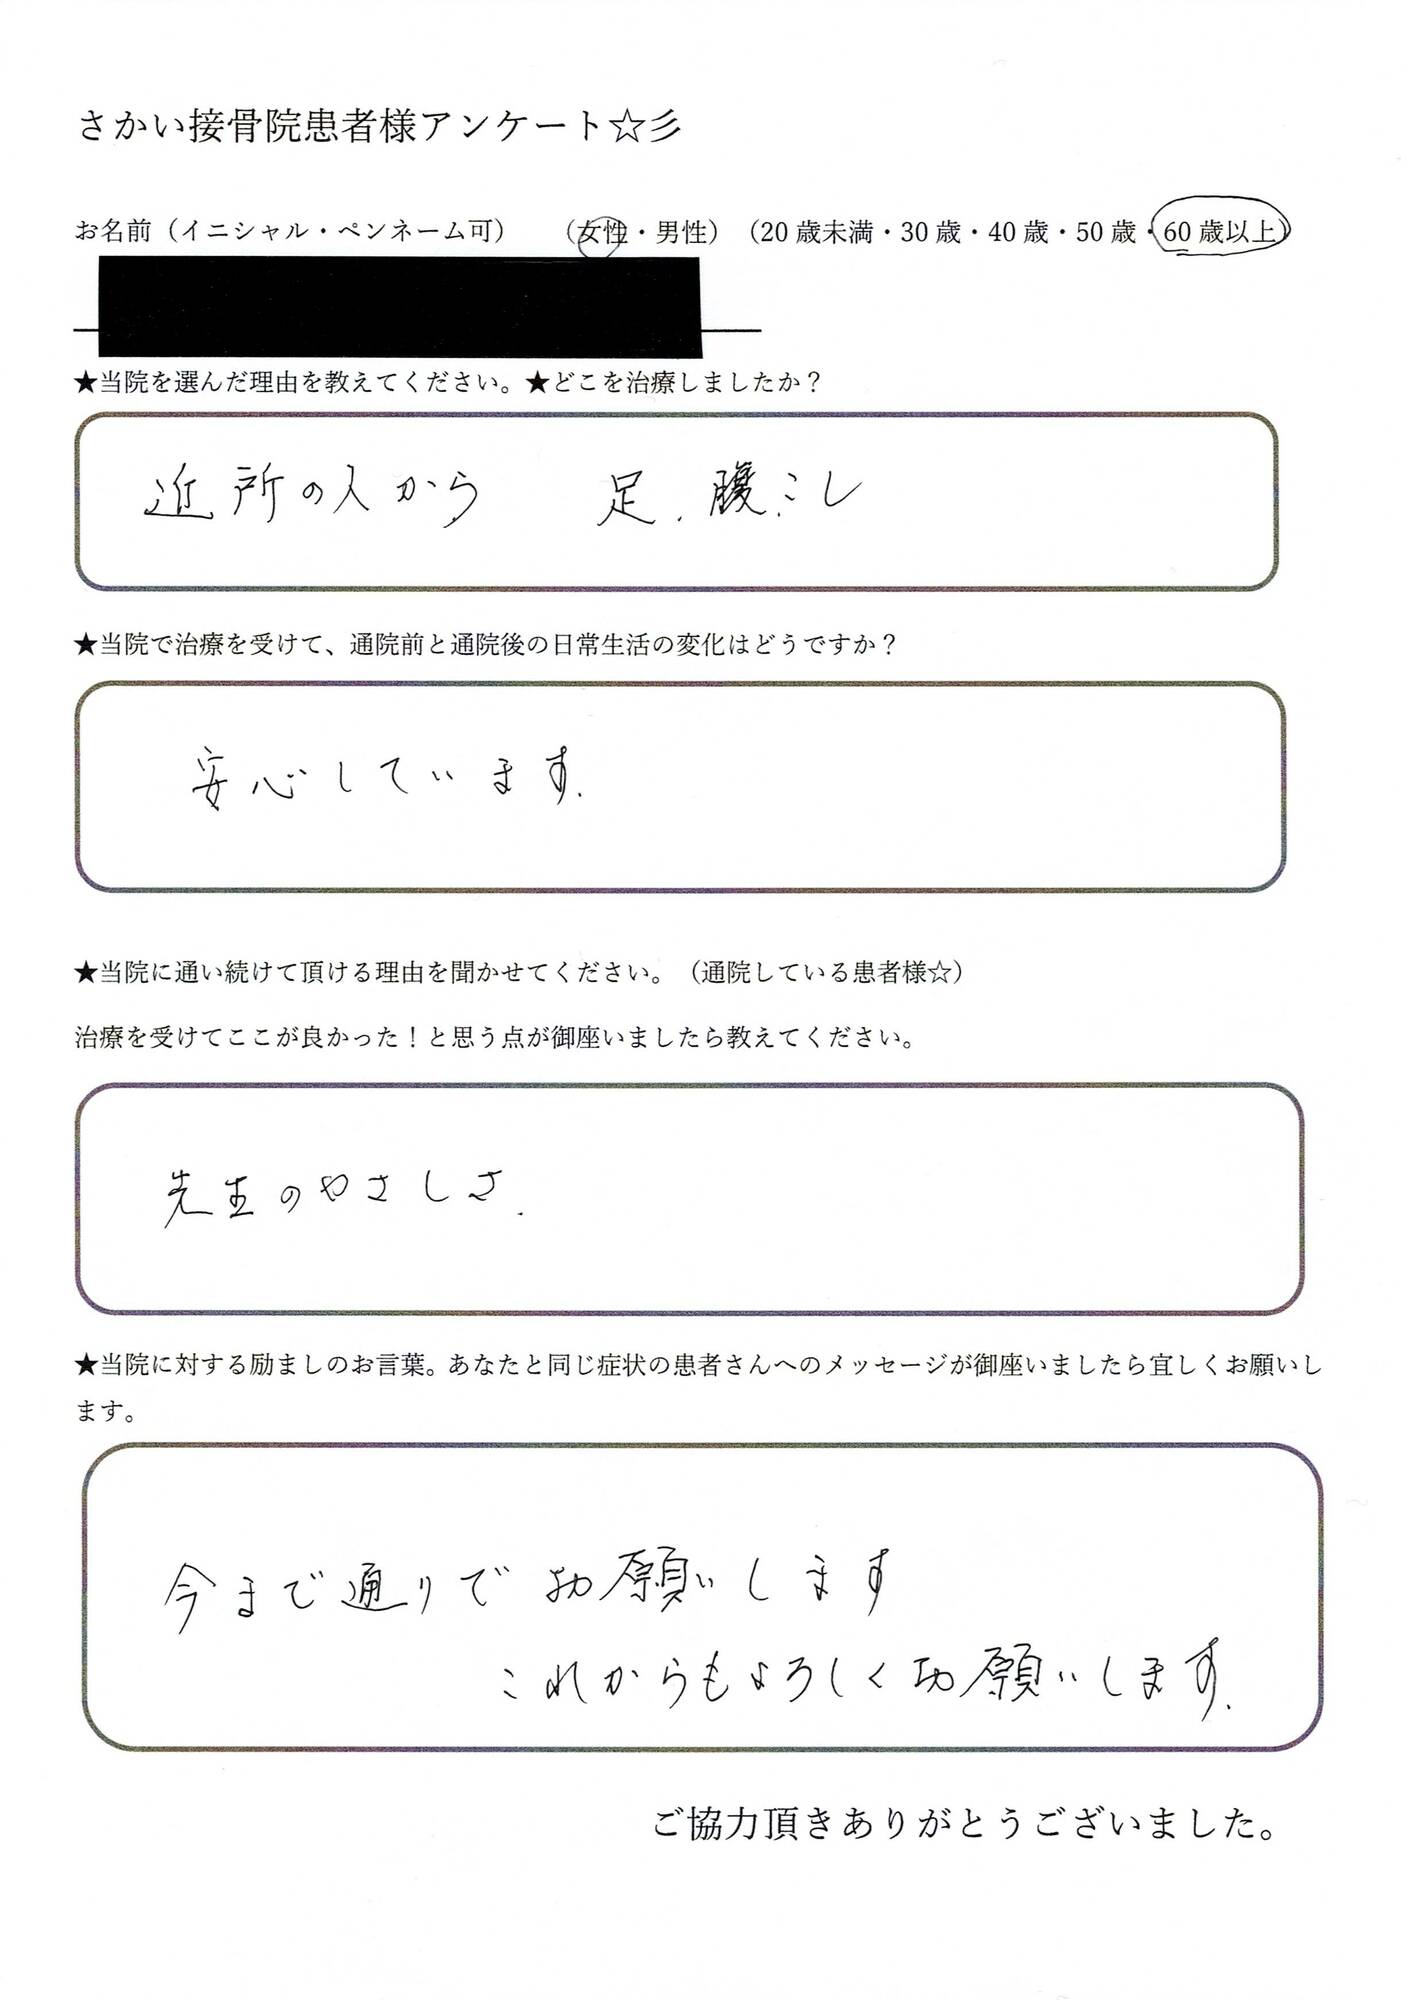 さかい接骨院患者様アンケート☆彡
お名前（イニシャル・ペンネーム可）　　（女性・男性）（20 歳未満・30 歳・40 歳・50 歳・60 歳以上）
★当院を選んだ理由を教えてください。★どこを治療しましたか？
近所の人から　　足．腹．こし
★当院で治療を受けて、通院前と通院後の日常生活の変化はどうですか？
安心しています．
★当院に通い続けて頂ける理由を聞かせてください。（通院している患者様☆）
治療を受けてここが良かった！と思う点が御座いましたら教えてください。
先生のやさしさ．
★当院に対する励ましのお言葉。あなたと同じ症状の患者さんへのメッセージが御座いましたら宜しくお願いし
ます。
今まで通りでお願いします
これからもよろしくお願いします．
ご協力頂きありがとうございました。